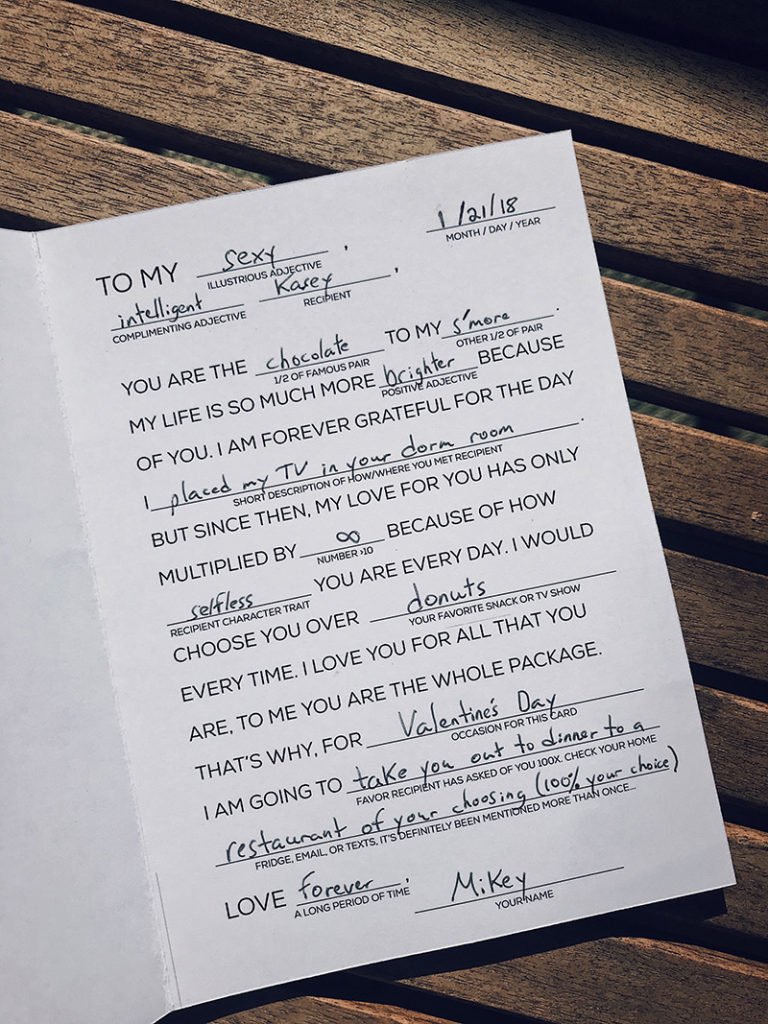 1/21/18
MONTH / DAY / YEAR
TO MY sexy,
ILLUSTRIOUS ADJECTIVE
intelligent Kasey,
COMPLIMENTING ADJECTIVE RECIPIENT
YOU ARE THE chocolate TO MY s'more.
1/2 OF FAMOUS PAIR OTHER 1/2 OF PAIR
MY LIFE IS SO MUCH MORE brighter BECAUSE
POSITIVE ADJECTIVE
OF YOU. I AM FOREVER GRATEFUL FOR THE DAY
I placed my TV in your dorm room.
SHORT DESCRIPTION OF HOW/WHERE YOU MET RECIPIENT
BUT SINCE THEN, MY LOVE FOR YOU HAS ONLY
MULTIPLIED BY ∞ BECAUSE OF HOW
NUMBER >10
selfless YOU ARE EVERY DAY. I WOULD
RECIPIENT CHARACTER TRAIT
CHOOSE YOU OVER donuts
YOUR FAVORITE SNACK OR TV SHOW
EVERY TIME. I LOVE YOU FOR ALL THAT YOU
ARE, TO ME YOU ARE THE WHOLE PACKAGE.
THAT'S WHY, FOR Valentine's Day
OCCASION FOR THIS CARD
I AM GOING TO take you out to dinner to a
FAVOR RECIPIENT HAS ASKED OF YOU 100X. CHECK YOUR HOME
restaurant of your choosing (100% your choice)
FRIDGE, EMAIL, OR TEXTS, IT'S DEFINITELY BEEN MENTIONED MORE THAN ONCE...
LOVE forever, Mikey
A LONG PERIOD OF TIME YOUR NAME